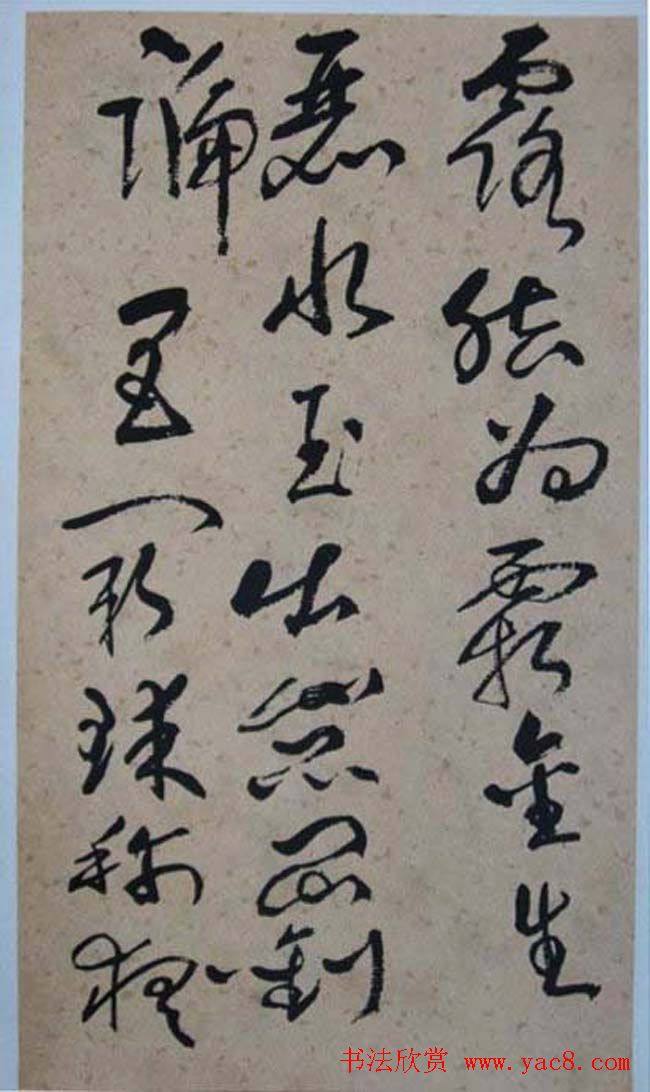 露結為霜金生
麗水玉出崑岡劍
號巨闕珠称夜
书法欣赏 www.yac8.com